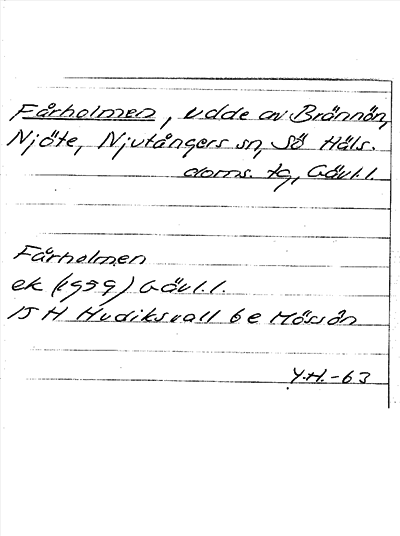 Fårholmen, udde av Brännön,
Njöte, Njutångers sn, Sö Häls.
doms. tg, Gävl.l.
Fårholmen
ek (1959) Gävl.l.
15 H Hudiksvall 6 e Mössön
Y.H.-63